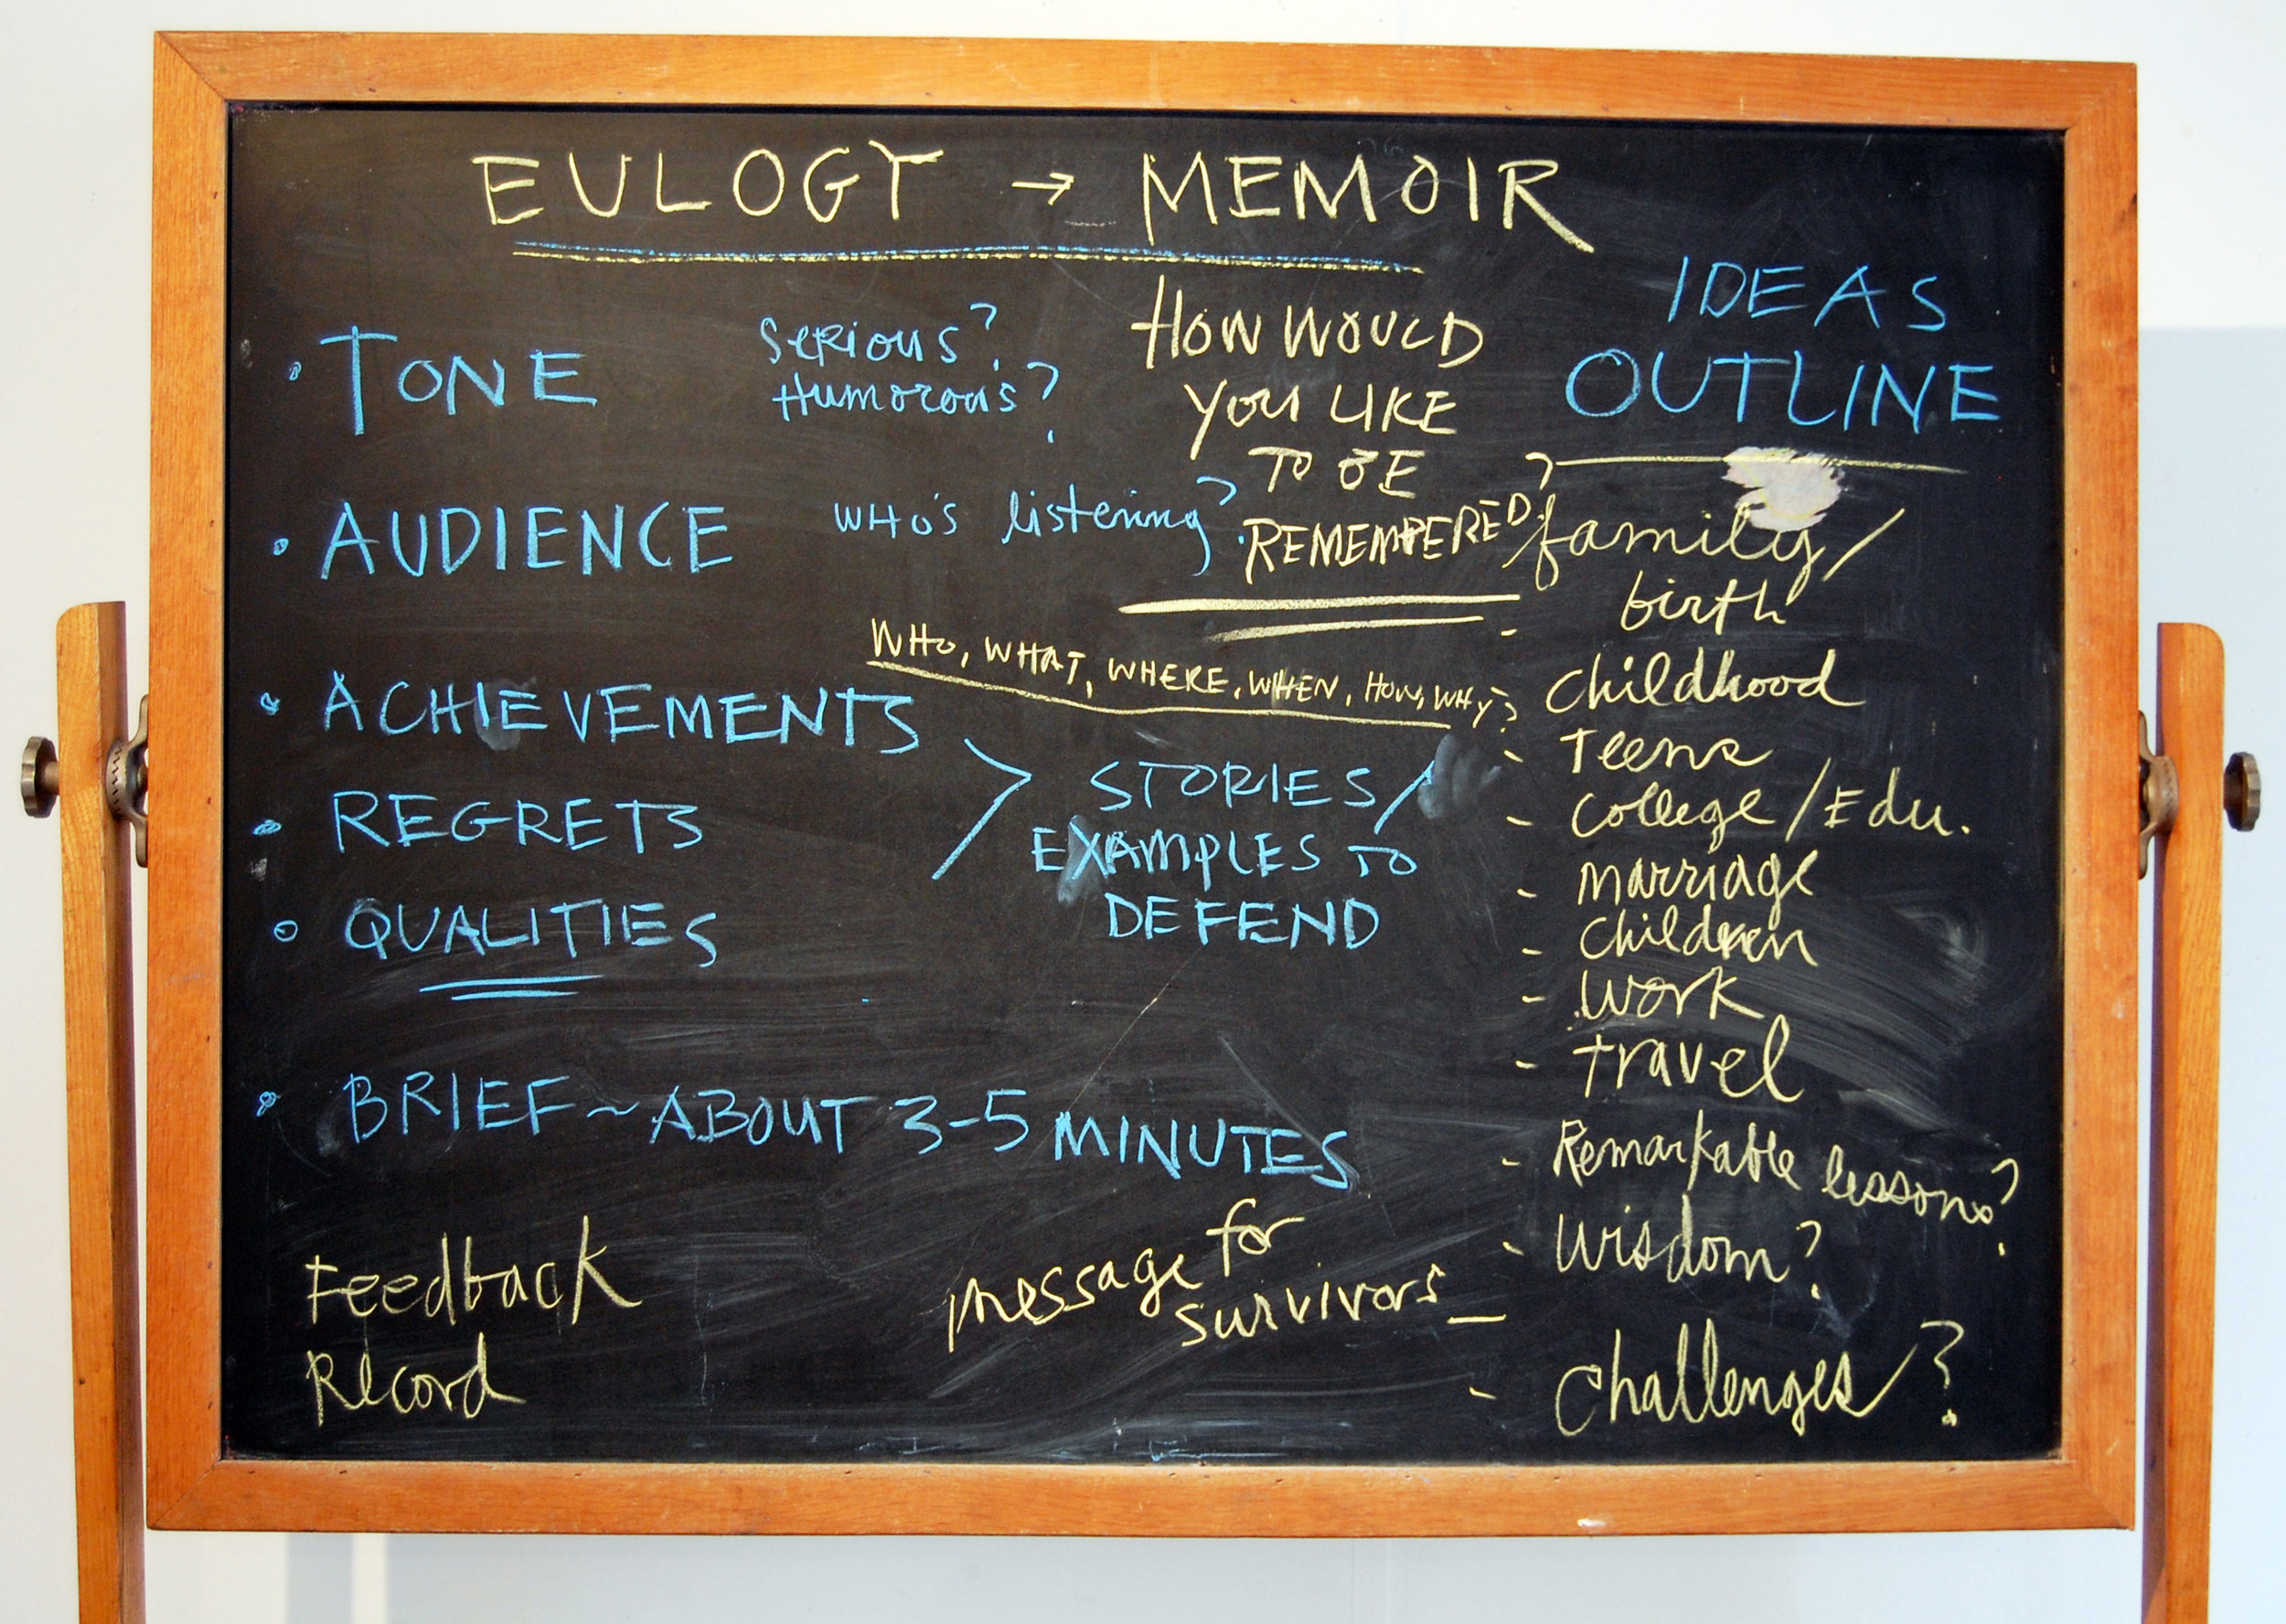 EULOGY → MEMOIR
• TONE
Serious?
Humorous?
• AUDIENCE
WHO'S listening?
• ACHIEVEMENTS
• REGRETS
• QUALITIES
> STORIES/
EXAMPLES TO
DEFEND
• BRIEF ~ ABOUT 3-5 MINUTES
Feedback
Record
HOW WOULD
YOU LIKE
TO BE
REMEMBERED?
WHO, WHAT, WHERE, WHEN, HOW, WHY?
message for
survivors
IDEAS
OUTLINE
family/
birth
- Childhood
- Teens
- College/Edu.
- marriage
- Children
- Work
- travel
- Remarkable lessons?
- Wisdom?
- Challenges?